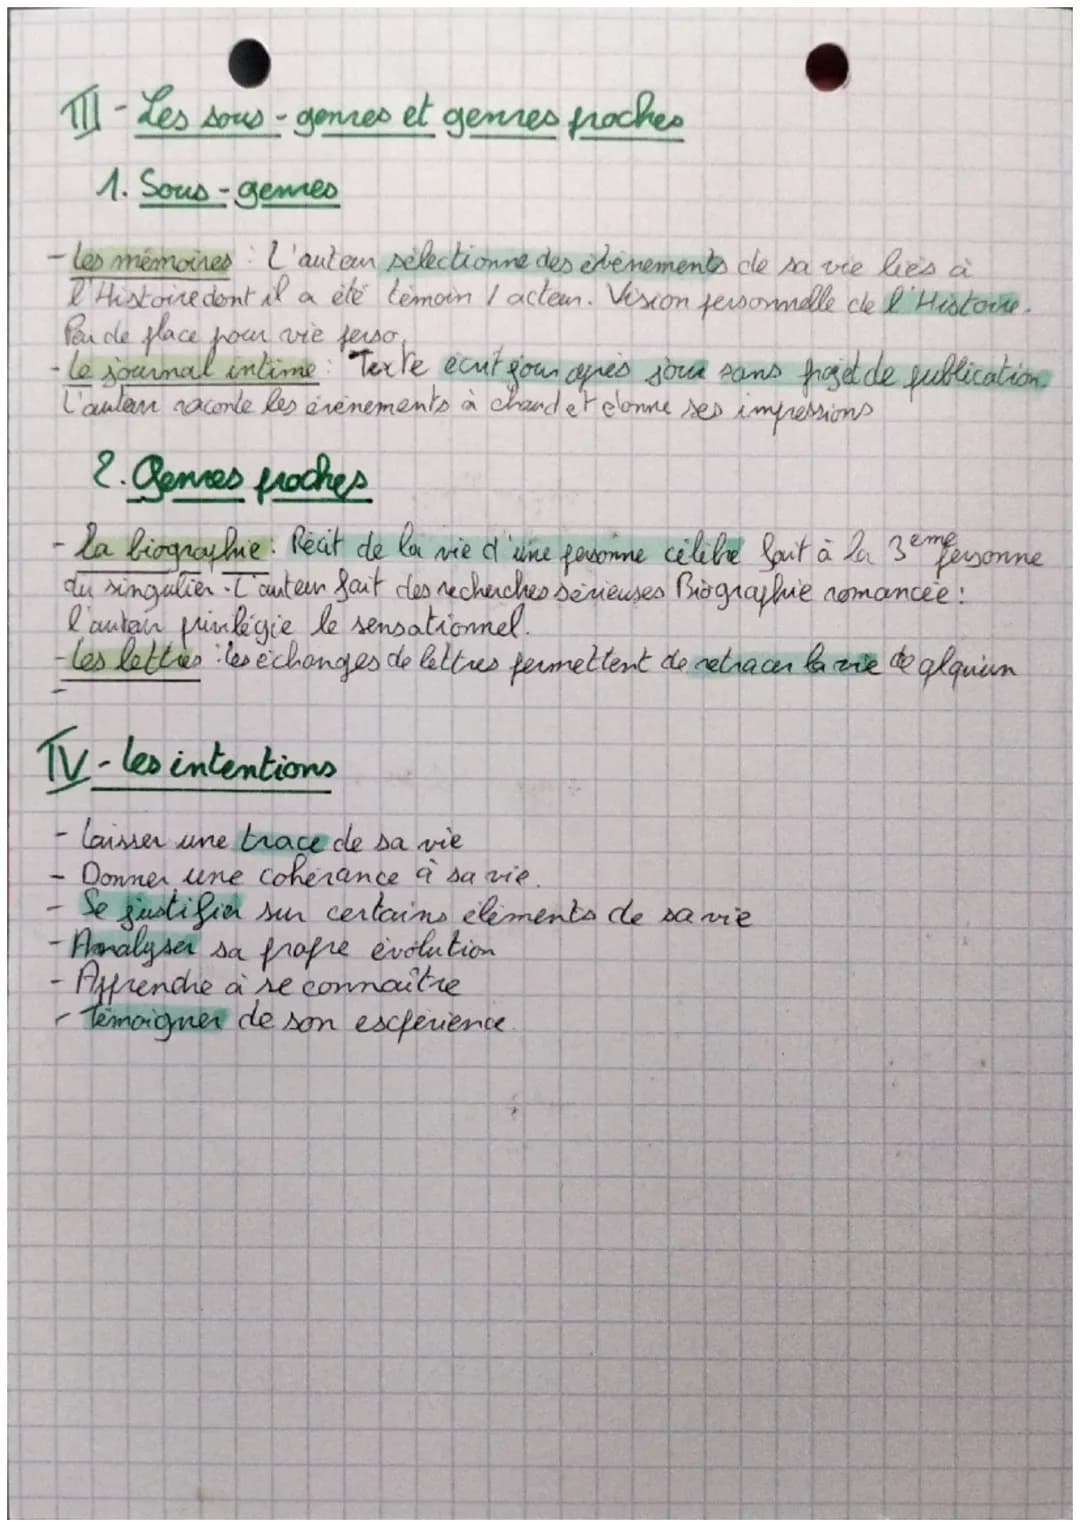 III - Les sous-genres et genres proches
1. Sous-genres
- Les mémoires : L'auteur sélectionne des évènements de sa vie liés à
l'Histoire dont il a été témoin / acteur. Vision personnelle de l'Histoire.
Peu de place pour vie perso.
- Le journal intime : Texte écrit jour après jour sans projet de publication.
L'auteur raconte les évènements à chaud et donne ses impressions
2. Genres proches
- La biographie : Récit de la vie d'une personne célèbre fait à la 3ème personne
du singulier. L'auteur fait des recherches sérieuses Biographie romancée :
l'auteur privilégie le sensationnel.
- Les lettres : les échanges de lettres permettent de retracer la vie de qlquun
-
IV - Les intentions
- Laisser une trace de sa vie
- Donner une cohérance à sa vie.
- Se justifier sur certains éléments de sa vie
- Analyser sa propre évolution
- Apprendre à se connaître
- Témoigner de son expérience.